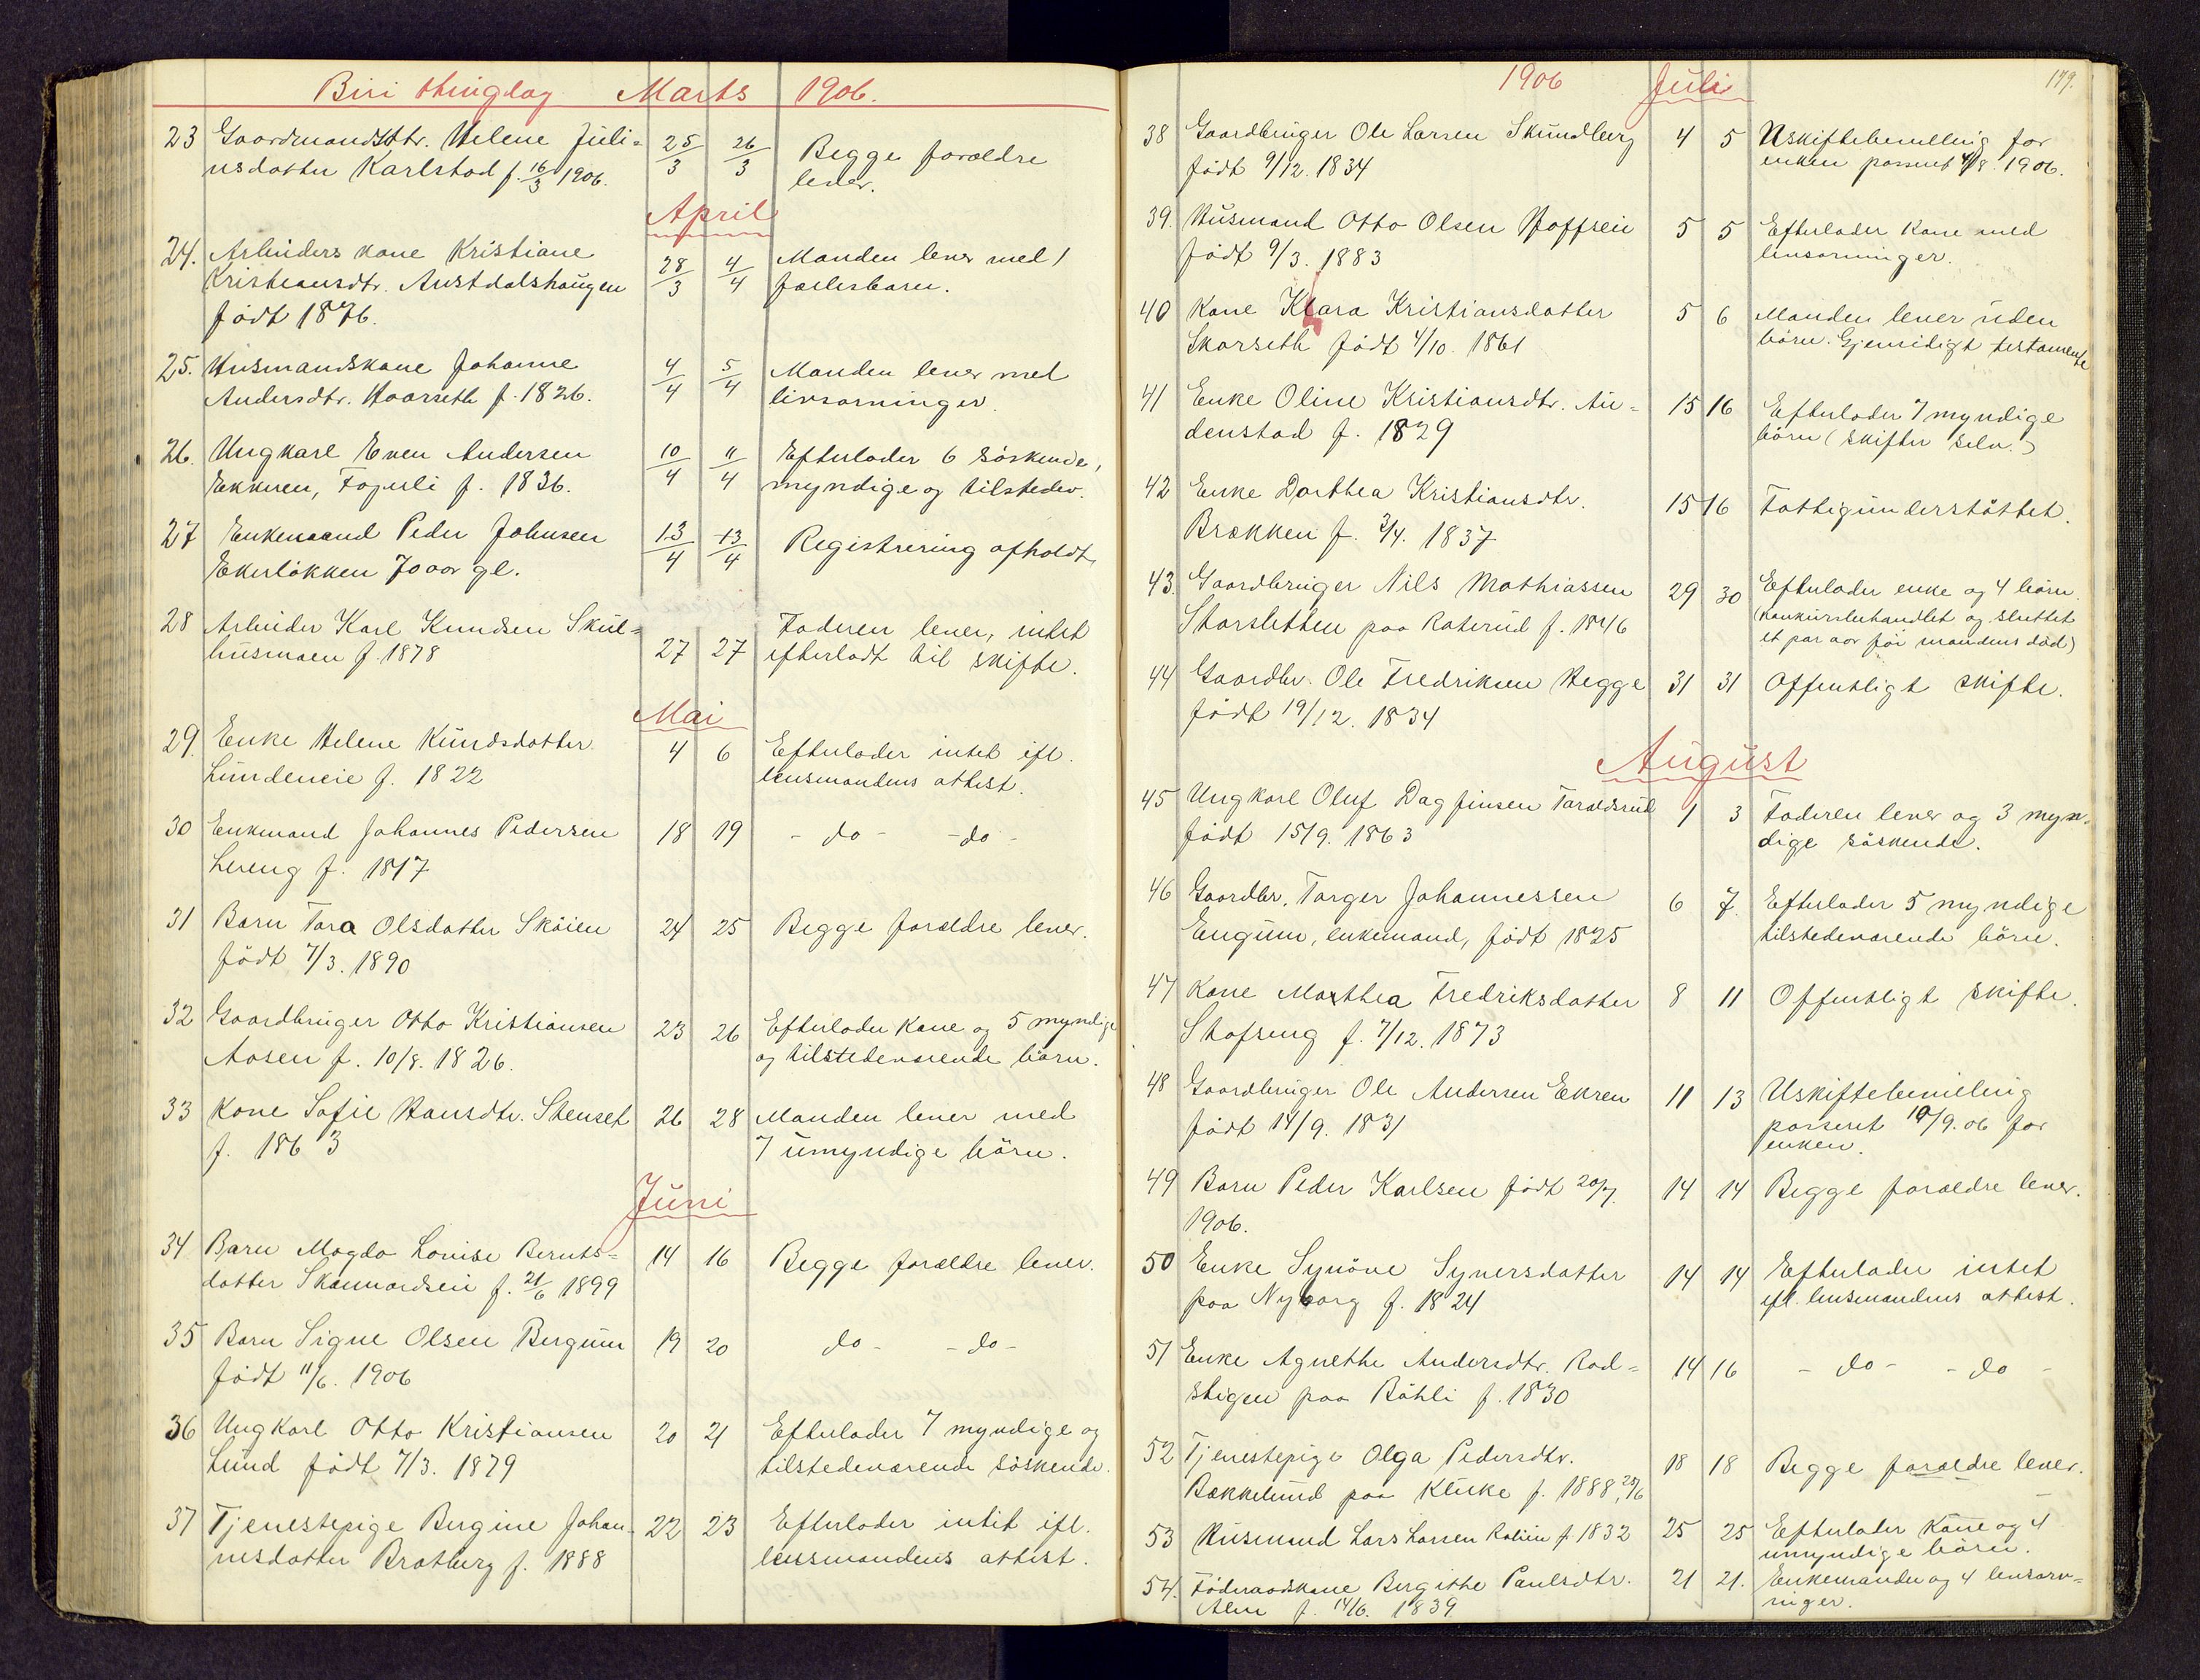 Biri thinglag Marts 1906.
23 Gaardmandsdtr. Helene Juli=
usdatter Karlstad f. 16/3 1906. 25/3 26/3 Begge forældre
lever.
April
24. Arbeiders kone Kristiane
Kristiansdtr. Austdalshaugen 28/3 4/4 Manden lever med 1
født 1876. fællesbarn.
25. Husmandskone Johanne 4/4 5/4 Manden lever med
Andersdtr. Haarseth f. 1826. livsarvinger.
26. Ungkarl Even Andersen 10/4 11/4 Efterlader 6 söskende,
Ekkeren, f. 1836. myndige og tilstedev.
27 Enkemand Peder Johnsen 13/4 13/4 Registrering afholdt
Ekerløkken 70 aar gl.
28 Arbeider Karl Knudsen Skul= Faderen lever, intet
husmoen f. 1878 27 27 efterladt til skifte.
Mai
29. Enke Helene Knudsdatter 4 6 Efterlader intet ifl.
Lundeneie f. 1822 lensmandens attest.
30 Enkemand Johannes Pedersen 18 19 - do - - do -
Lereng f. 1817
31 Barn Tora Olsdatter Skøien 24 25 Begge forældre lever.
født 7/3. 1890
32 Gaardbruger Otto Kristiansen 23 26 Efterlader kone og 5 myndige
Aasen f. 10/8. 1826. og tilstedeværende børn.
33 Kone Sofie Hansdtr. Stenset 26 28 Manden lever med
f. 1863 7 umyndige børn.
Juni
34 Barn Magda Louise Bernts=
datter f. 21/6 1899 14 16 Begge forældre lever.
35 Barn Signe Olsen Bergum 19 20 do - - do -
født 11/6. 1906
36 Ungkarl Otto Kristiansen 20 21 Efterlader 7 myndige og
Lund født 7/3. 1879 tilstedeværende söskende.
37 Tjenestepige Bergine Johan= 22 23 Efterlader intet ifl.
nesdatter Bratberg f. 1888 lensmandens attest.
1906 Juli 179.
38 Gaardbruger Ole Larsen Skundberg 4 5 Uskiftebevilling for
født 9/12. 1834 enken passeret 4/8. 1906.
39. Husmand Otto Olsen 5 5 Efterlader kone med
født 9/3. 1883 livsarvinger.
40 Kone Klara Kristiansdatter 5 6 Manden lever uden
Skarseth født 4/10. 1861 børn. Gjensidigt testamente
41 Enke Oline Kristiansdtr. Au= 15 16 Efterlader 7 myndige
denstad f. 1829 børn (skifter selv.)
42 Enke Dorthea Kristiansdtr. 15 16 Fattigunderstøttet.
Brækken f. 2/4. 1837
43. Gaardbruger Nils Mathiassen 29 30 Efterlader enke og 4 børn.
Storsletten paa Raterud f. 1846 (konkursbehandlet og sluttet
et par aar før mandens död)
44 Gaardbr. Ole Fredriksen Hegge 31 31 Offentligt skifte.
født 19/12. 1834
August
45 Ungkarl Oluf Dagfinsen Taraldsrud 1 3 Faderen lever og 3 myn=
født 15/9. 1863 dige söskende.
46 Gaardbr. Torger Johannessen 6 7. Efterlader 5 myndige
Engum, enkemand, født 1825 tilstedeværende børn.
47 Kone Marthea Fredriksdatter 8 11 Offentligt skifte.
f. 7/12. 1873
48 Gaardbruger Ole Andersen Ekren 11 13 Uskiftebevilling
født 14/9. 1831 passeret 10/9. 06 for
enken.
49 Barn Peder Karlsen født 20/7. 14 14 Begge forældre lever.
1906.
50 Enke Synöve Syversdatter 14 14 Efterlader intet
paa Nyborg f. 1824 ifl. lensmandens attest.
51 Enke Agnethe Andersdtr. Rød= 14 16 - do - - do -
stigen paa Bøhli f. 1830
52 Tjenestepige Olga Pedersdtr. 18 18 Begge forældre lever.
Bækkelund paa Klukke f. 1888, 20/6
53 Husmand Lars Larsen f. 1832 25 25 Efterlader kone og 4
umyndige børn.
54. Föderaadskone Birgithe Paulsdtr. 21 21. Enkemanden og 4 livsarv=
Alm f. 14/6. 1839 inger.